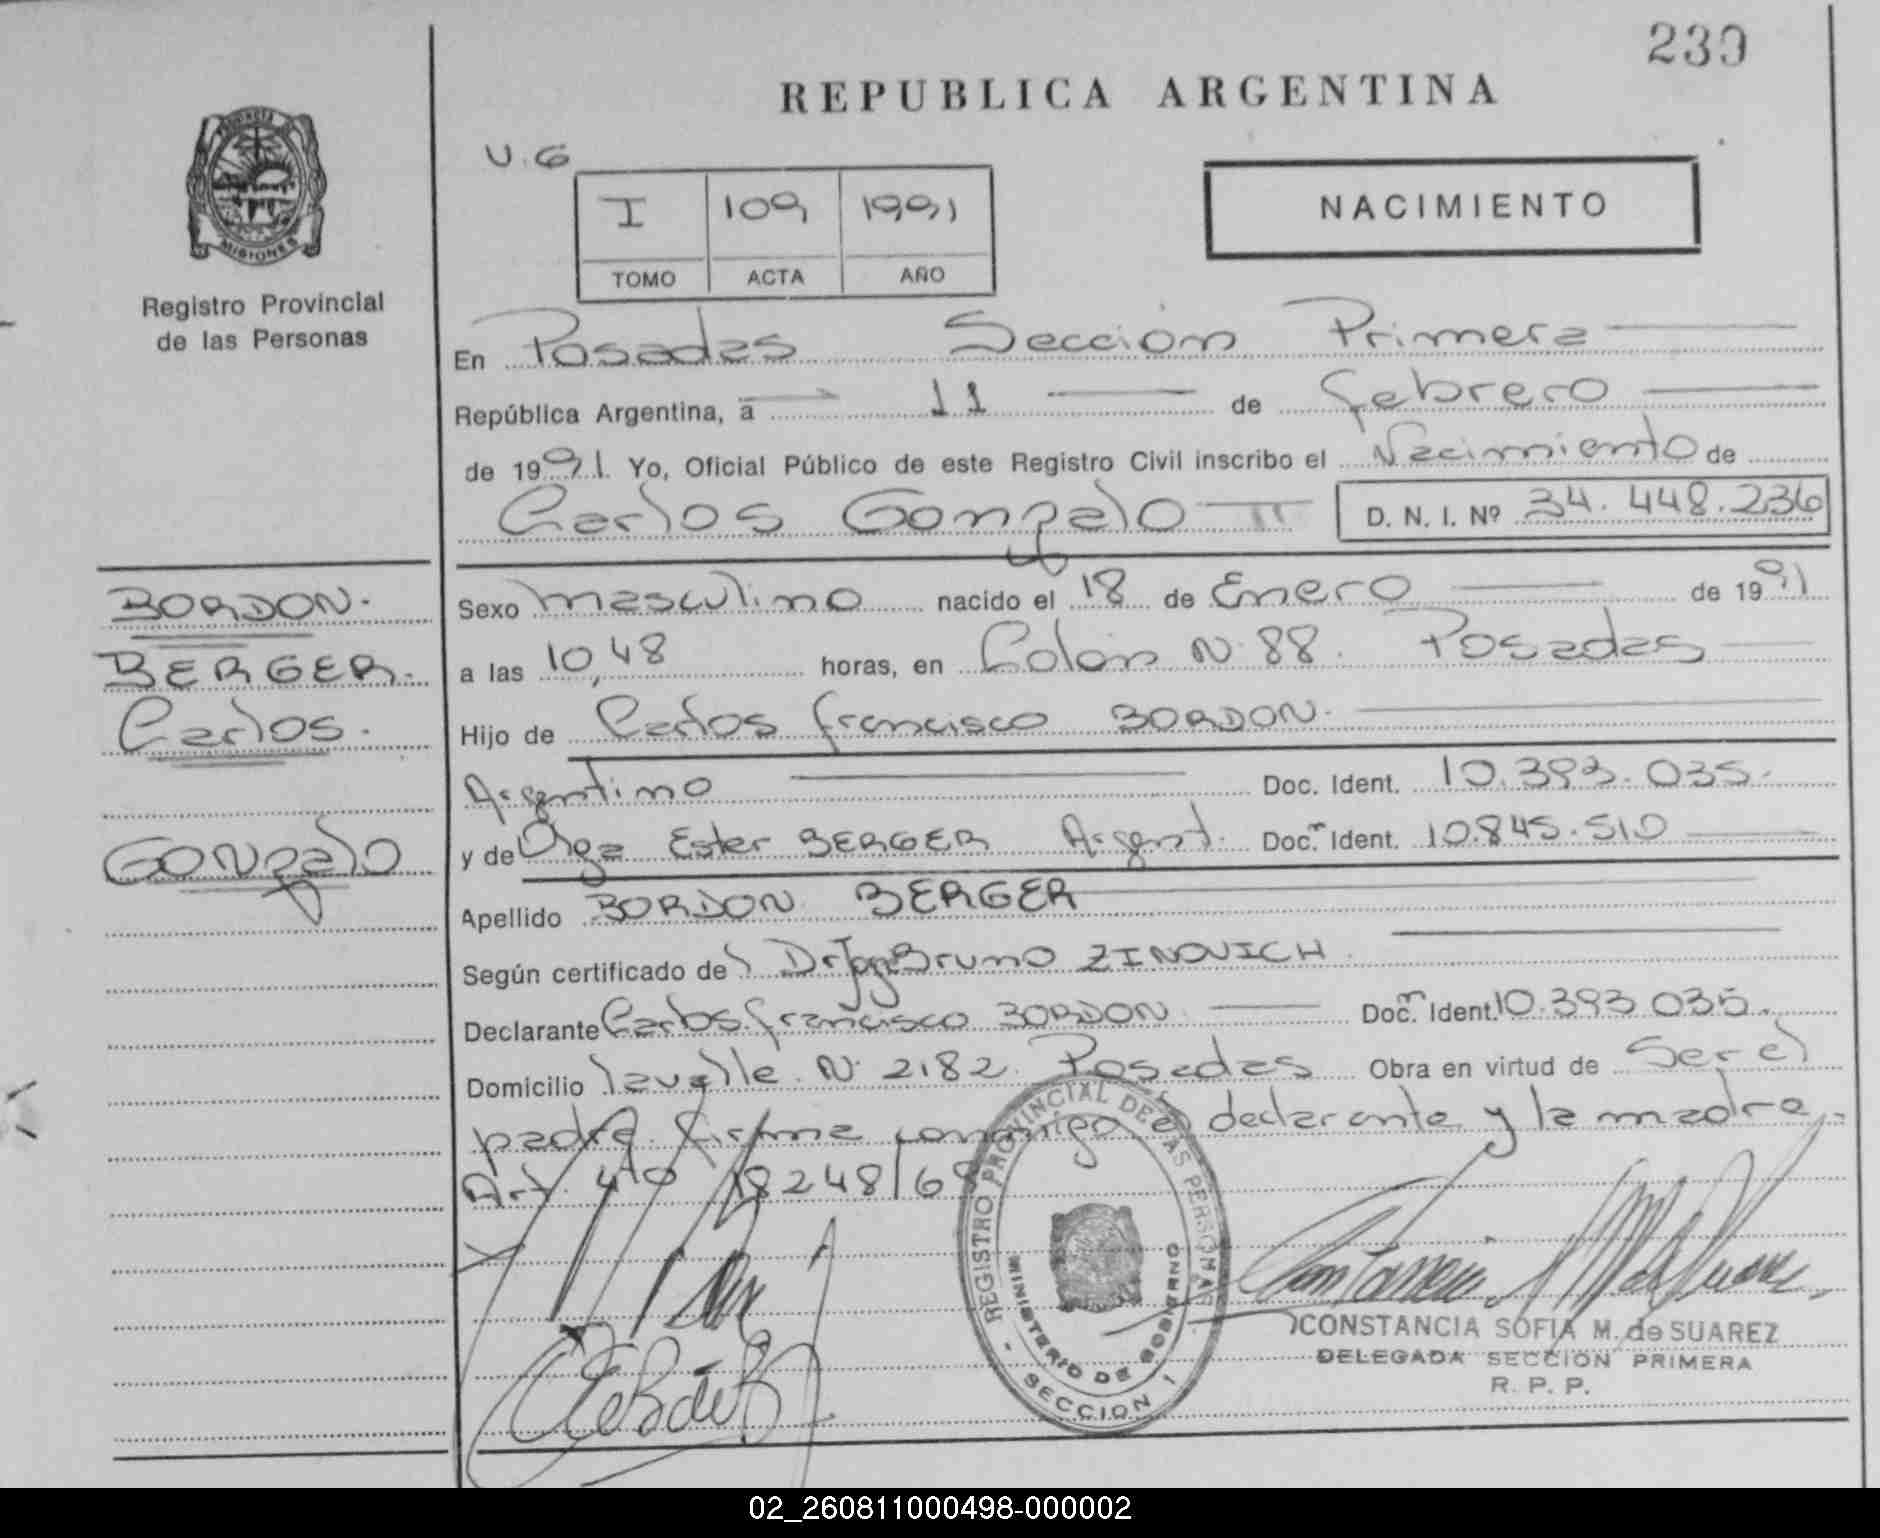 239
REPUBLICA ARGENTINA
PROVINCIA DE
MISIONES
Registro Provincial
de las Personas
U.G
I 109 1991
TOMO ACTA AÑO
NACIMIENTO
En Posadas Sección Primera
República Argentina, a 11 de febrero
de 1991. Yo, Oficial Público de este Registro Civil inscribo el Nacimiento de
Carlos Gonzalo D. N. I. Nº 34.448.236
BORDON.
BERGER.
Carlos.
Gonzalo
Sexo masculino nacido el 18 de Enero de 1991
a las 10,48 horas, en Colón N. 88. Posadas
Hijo de Carlos francisco BORDON.
Argentino Doc. Ident. 10.393.035.
y de Olga Ester BERGER Argent. Doc. Ident. 10.845.510
Apellido BORDON BERGER
Según certificado del Dr. Bruno ZINOVICH.
Declarante Carlos francisco BORDON Doc. Ident. 10.393.035.
Domicilio lavalle N. 2182. Posadas Obra en virtud de Ser el
padre. firma conmigo el declarante y la madre.
Art. 40 18248/69
REGISTRO PROVINCIAL DE LAS PERSONAS
MINISTERIO DE GOBIERNO
- SECCION 1
CONSTANCIA SOFIA M. de SUAREZ
DELEGADA SECCION PRIMERA
R. P. P.
02_260811000498-000002